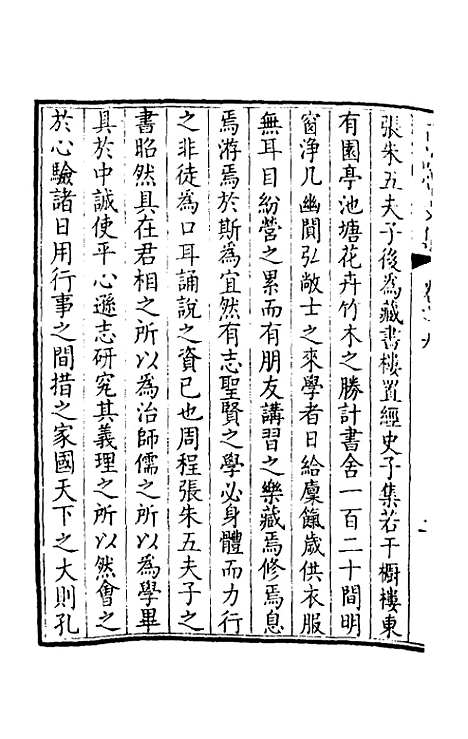 張朱五夫子後為藏書樓置經史子集若干櫥樓東
有園亭池塘花卉竹木之勝計書舍一百二十間明
窗淨几幽閴弘敞士之來學者日給廩餼歲供衣服
無耳目紛營之累而有朋友講習之樂藏焉修焉息
焉游焉於斯為宜然有志聖賢之學必身體而力行
之非徒為口耳誦說之資已也周程張朱五夫子之
書昭然具在君相之所以為治師儒之所以為學畢
具於中誠使平心遜志研究其義理之所以然會之
於心驗諸日用行事之間措之家國天下之大則孔